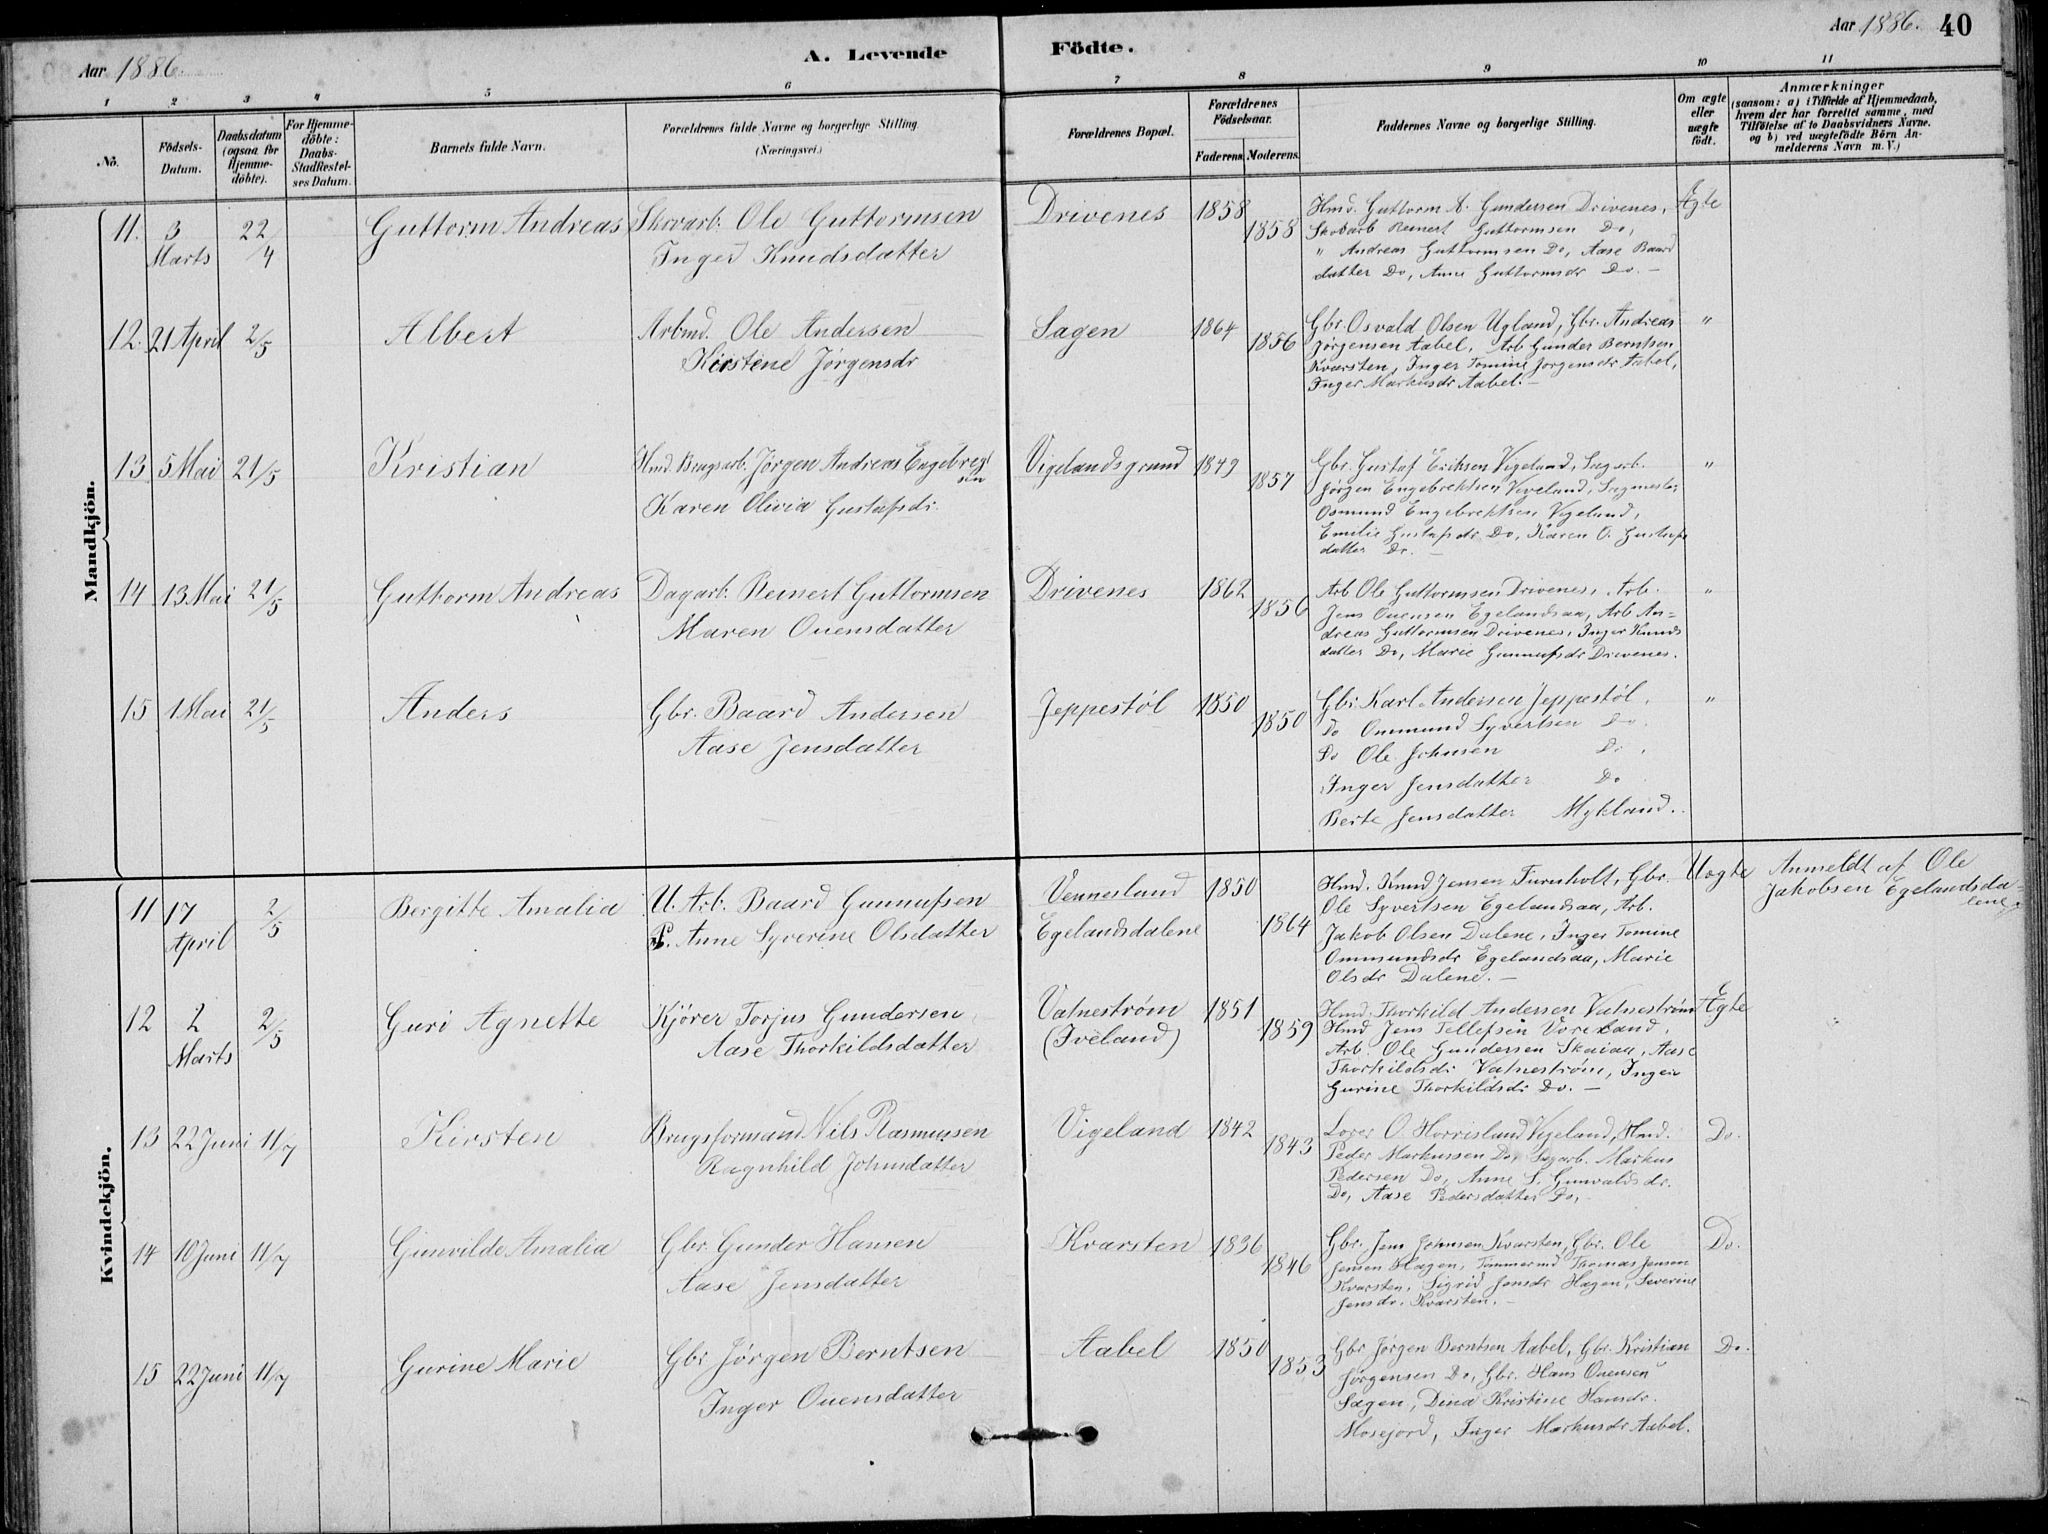 Aar 1886.
A. Levende Födte.
Aar 1886. 40
1 2 3 4 5 6 7 8 9 10 11
No.
Födsels-Datum.
Daabsdatum (ogsaa for Hjemme-döbte).
For Hjemme-döbte: Daabs-Stadfæstel-ses Datum.
Barnets fulde Navn.
Forældrenes fulde Navne og borgerlige Stilling (Næringsvei.)
Forældrenes Bopæl.
Forældrenes Födselsaar.
Faderens. Moderens.
Faddernes Navne og borgerlige Stilling.
Om ægte eller uægte födt.
Anmærkninger
(saasom: a) i Tilfælde af Hjemmedaab,
hvem der har forrettet samme, med
Tilföielse af to Daabsvidners Navne.
og b) ved uægtefödte Börn An-
melderens Navn m. V.)
Mandkjön.
11. 3 Marts 22/4 Guttorm Andreas
Skovarb. Ole Guttormsen
Inger Knudsdatter
Drivenes 1858 1858
Hmd. Guttorm A. Gundersen Drivenes,
Skovarb Reinert Guttormsen Do,
" Andreas Guttormsen Do, Aase Baard
datter Do, Anne Guttormsdr Do. –
Ægte
12. 21 April 2/5 Albert
Arbmd. Ole Andersen
Kirstene Jørgensdr
Sagen 1864 1856
Gbr. Osvald Olsen Ugland, Gbr. Andreas
Jørgensen Aabel, Arb Gunder Berntsen
Kvarsten, Inger Tomine Jørgensdr Aabel,
Inger Markusdr Aabel. –
"
13 5 Mai 21/5 Kristian
Hmd. Brugsarb. Jørgen Andreas Engebregt
sen
Karen Olivia Gustafsdr.
Vigelandsgrund 1849 1857
Gbr. Gustaf Eriksen Vigeland, Sagarb.
Jørgen Engebrektsen Vigeland, Sagmester
Osmund Engebrektsen Vigeland,
Emilie Gustafsdr Do, Karen O. Gustafs
datter Do. –
"
14 13 Mai 21/5 Guttorm Andreas
Dagarb. Reinert Guttormsen
Maren Ouensdatter
Drivenes 1862 1856
Arb Ole Guttormsen Drivenes, Arb.
Jens Ouensen Egelandsaa, Arb. An-
dreas Guttormsen Drivenes, Inger Knuds
datter Do, Marie Gunnufsdr Drivenes.
"
15 1 Mai 21/5 Anders
Gbr. Baard Andersen
Aase Jensdatter
Jeppestøl 1850 1850
Gbr. Karl Andersen Jeppestøl,
Do Ommund Syvertsen Do.
Do Ole Johnsen Do.
Inger Jensdatter Do
Berte Jensdatter Mykland.
"
Kvindekjön.
11 17 April 2/5 Bergitte Amalia
U. Arb. Baard Gunnufsen
P. Anne Syverine Olsdatter
Vennesland
Egelandsdalene
1850 1864
Hmd. Knud Jensen Furuholt, Gbr.
Ole Syvertsen Egelandsaa, Arb.
Jakob Olsen Dalene, Inger Tomine
Ommundsdr Egelandsaa, Marie
Olsdr Dalene. –
Uægte
Anmeldt af Ole
Jakobsen Egelandsda-
lene.
12 2 Marts 2/5 Guri Agnette
Kjører Torjus Gundersen
Aase Thorkildsdatter
Vatnestrøm
(Iveland)
1851 1859
Hmd. Thorkild Andersen Vatnestrøm
Hmd Jens Tellefsen
Arb. Ole Gundersen Skaiaa, Aase
Thorkildsdr Vatnestrøm, Inger
Gurine Thorkildsdr Do. –
Ægte
13 22 Juni 11/7 Kirsten
Brugsformand Nils Rasmussen
Ragnhild Johnsdatter
Vigeland 1842 1843
O. Horrisland Vigeland, Hmd.
Peder Markussen Do, Sagarb. Markus
Pedersen Do, Anne S. Gunvaldsdr.
Do, Aase Pedersdatter Do,
Do.
14 10 Juni 11/7 Gunvilde Amalia
Gbr. Gunder Hansen
Aase Jensdatter
Kvarsten 1836 1846
Gbr. Jens Johnsen Kvarsten, Gbr. Ole
Jensen Hagen, Tømmermd Thomas Jensen
Kvarsten, Sigrid Jensdr Hagen, Severine
Jensdr. Kvarsten. –
Do.
15 22 Juni 11/7 Gurine Marie
Gbr Jørgen Berntsen
Inger Ouensdatter
Aabel 1850 1853
Gbr Jørgen Berntsen Aabel, Gbr. Kristian
Jørgensen Do, Gbr. Hans Ouensen
Sagen, Dina Kristine Hansdr.
Mosejord, Inger Markusdr Aabel.
Do.